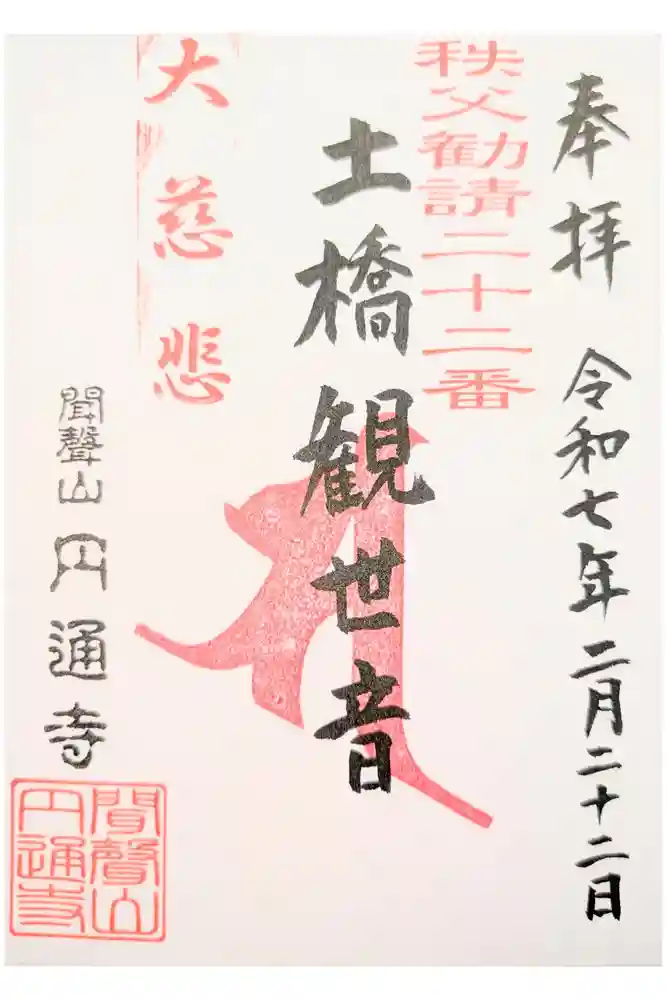 奉拝 令和七年二月二十二日
秩父勧請二十二番
土橋観世音
大慈悲
聞聲山円通寺
聞聲山
円通寺